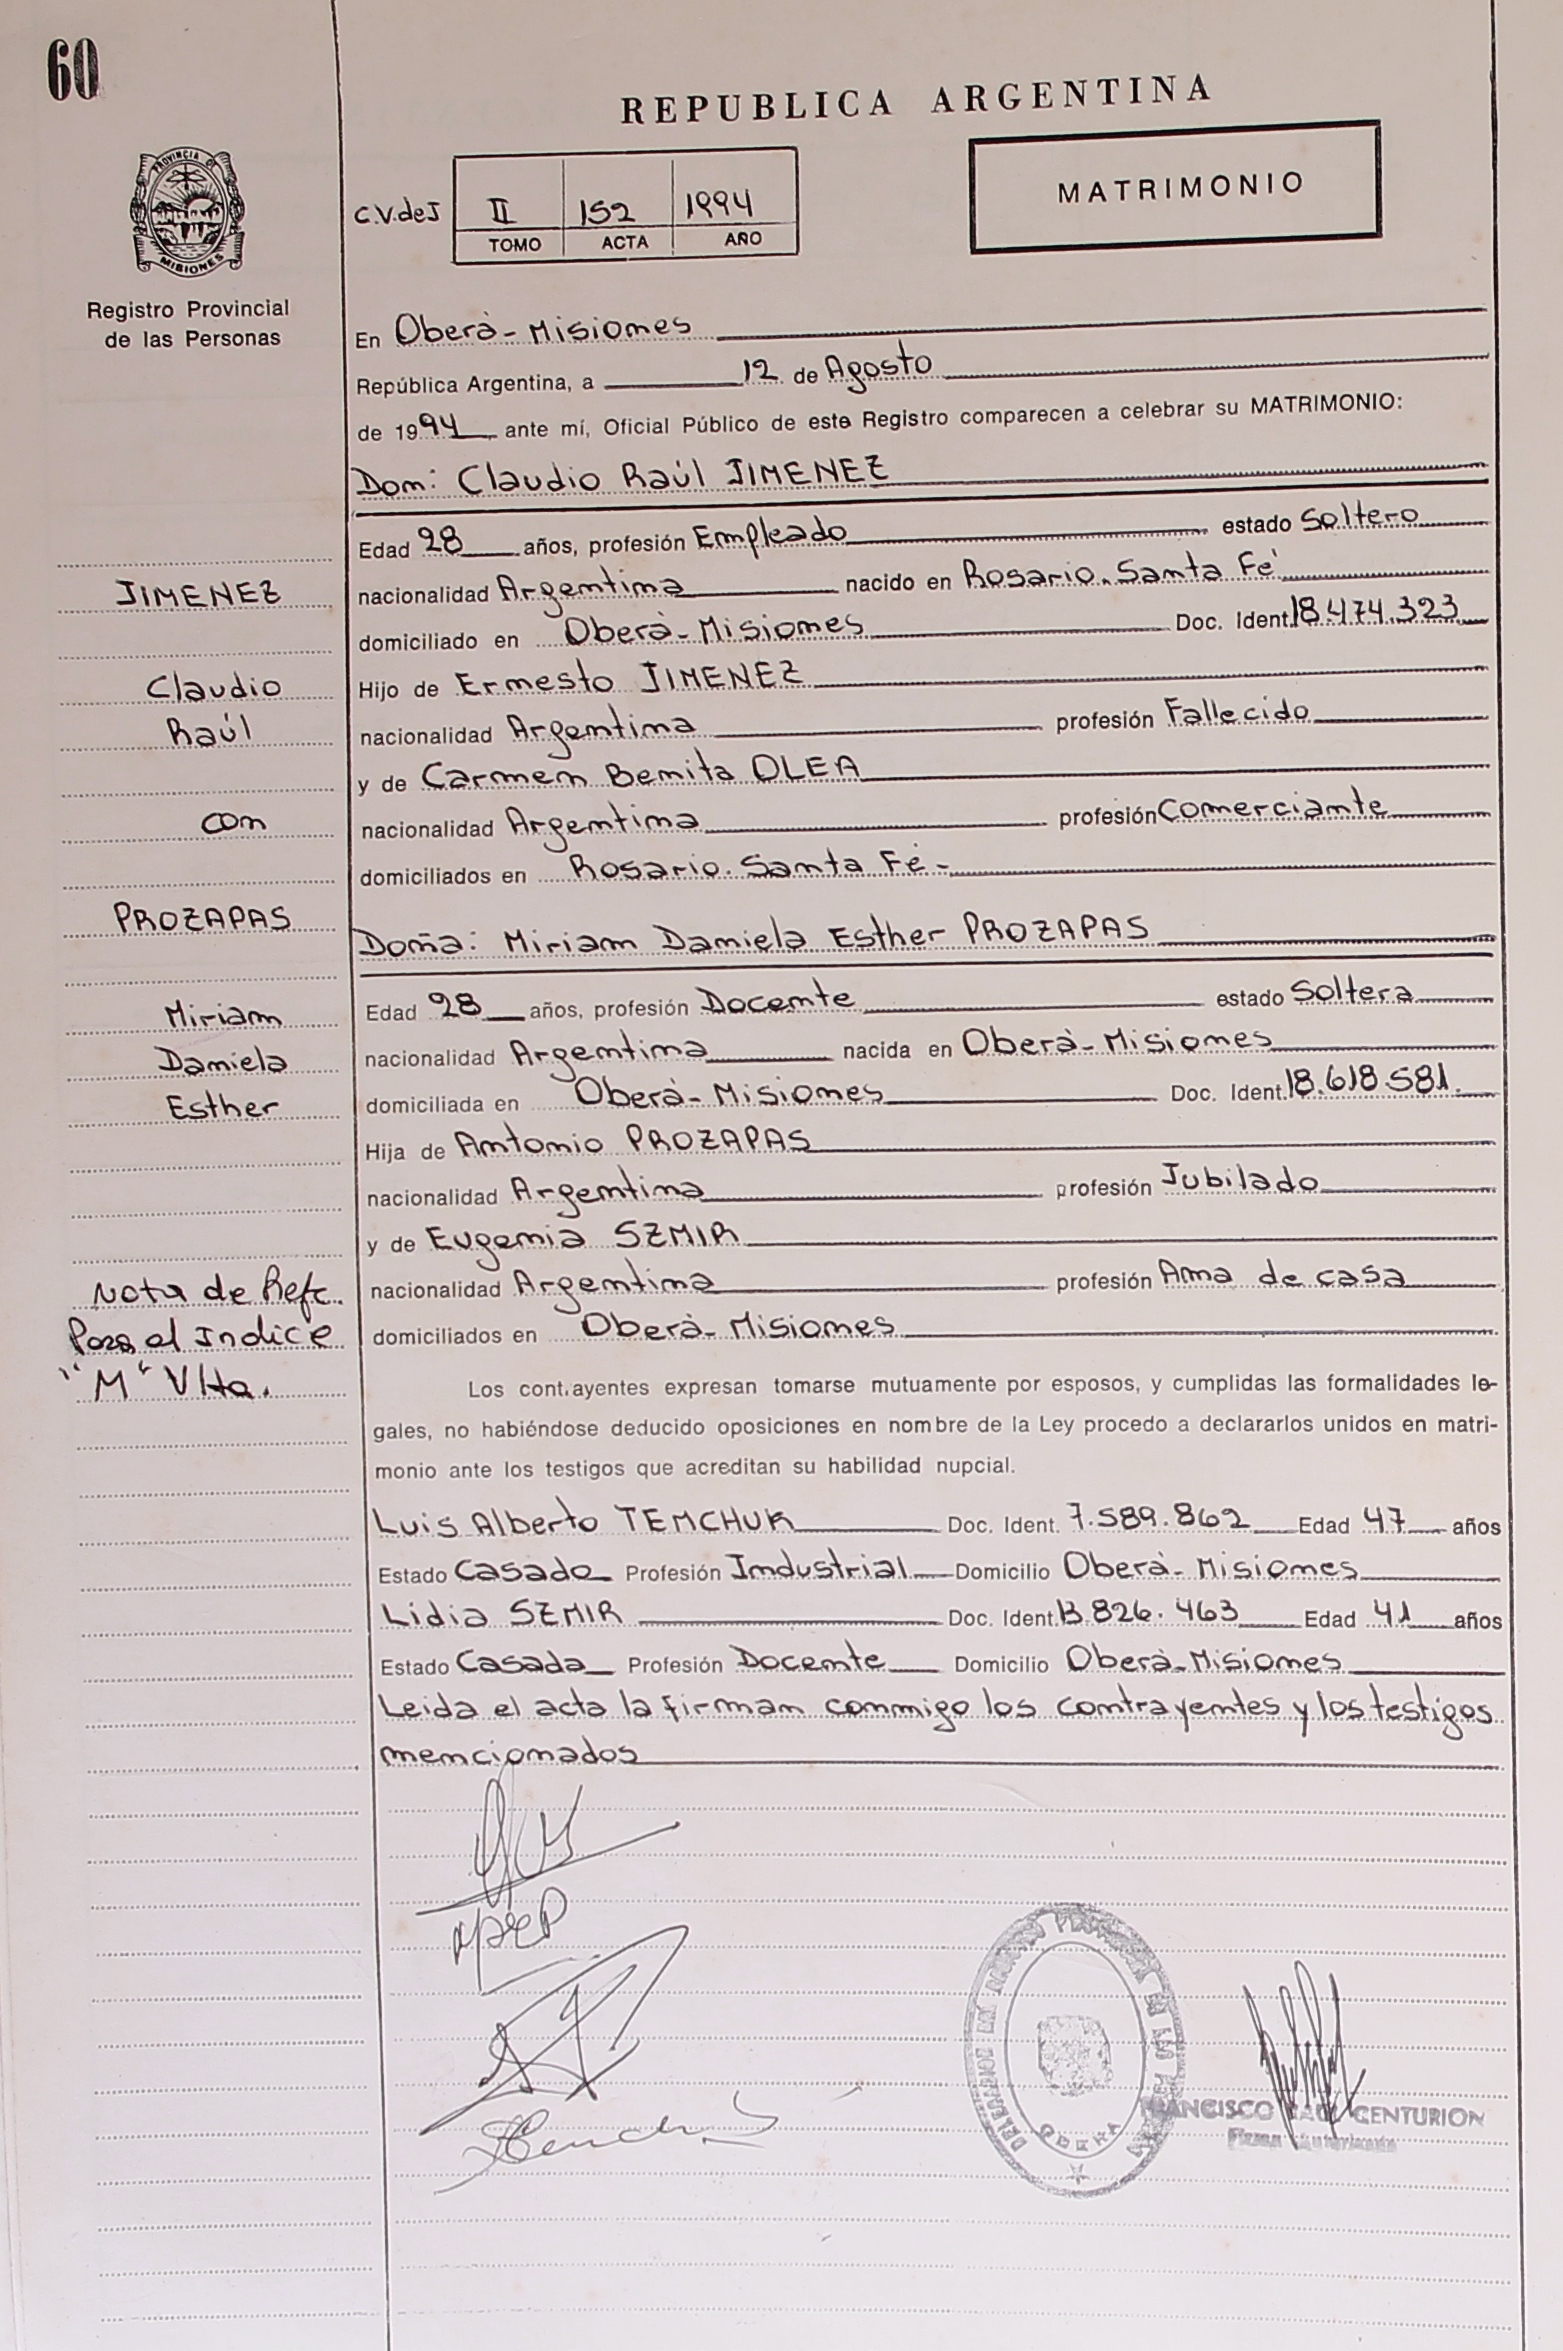 60
REPUBLICA ARGENTINA
PROVINCIA DE
MISIONES
Registro Provincial
de las Personas
C.V.deJ II 152 1994
TOMO ACTA AÑO
MATRIMONIO
En Oberà - Misiones
República Argentina, a 12 de Agosto
de 1994 ante mí, Oficial Público de este Registro comparecen a celebrar su MATRIMONIO:
Don: Claudio Raúl JIMENEZ
Edad 28 años, profesión Empleado estado Soltero
nacionalidad Argentina nacido en Rosario. Santa Fé
domiciliado en Oberà - Misiones Doc. Ident. 18.474.323
Hijo de Ernesto JIMENEZ
nacionalidad Argentina profesión Fallecido
y de Carmen Benita OLEA
nacionalidad Argentina profesión Comerciante
domiciliados en Rosario. Santa Fé -
Doña: Miriam Daniela Esther PROZAPAS
Edad 28 años, profesión Docente estado Soltera
nacionalidad Argentina nacida en Oberà - Misiones
domiciliada en Oberà - Misiones Doc. Ident. 18.618.581.
Hija de Antonio PROZAPAS
nacionalidad Argentina profesión Jubilado
y de Eugenia SZMIR
nacionalidad Argentina profesión Ama de casa
domiciliados en Oberà - Misiones
Los contrayentes expresan tomarse mutuamente por esposos, y cumplidas las formalidades le-
gales, no habiéndose deducido oposiciones en nombre de la Ley procedo a declararlos unidos en matri-
monio ante los testigos que acreditan su habilidad nupcial.
Luis Alberto TEMCHUK Doc. Ident. 7.589.862 Edad 47 años
Estado Casado Profesión Industrial Domicilio Oberà - Misiones
Lidia SZMIR Doc. Ident. 13.826.463 Edad 41 años
Estado Casada Profesión Docente Domicilio Oberà - Misiones
Leida el acta la firman conmigo los contrayentes y los testigos
mencionados
JIMENEZ
Claudio
Raúl
con
PROZAPAS
Miriam
Daniela
Esther
Nota de Refc.
Para el Indice
"M" Vlta.
OBERA
FRANCISCO RAUL CENTURION
Firma Autorizada